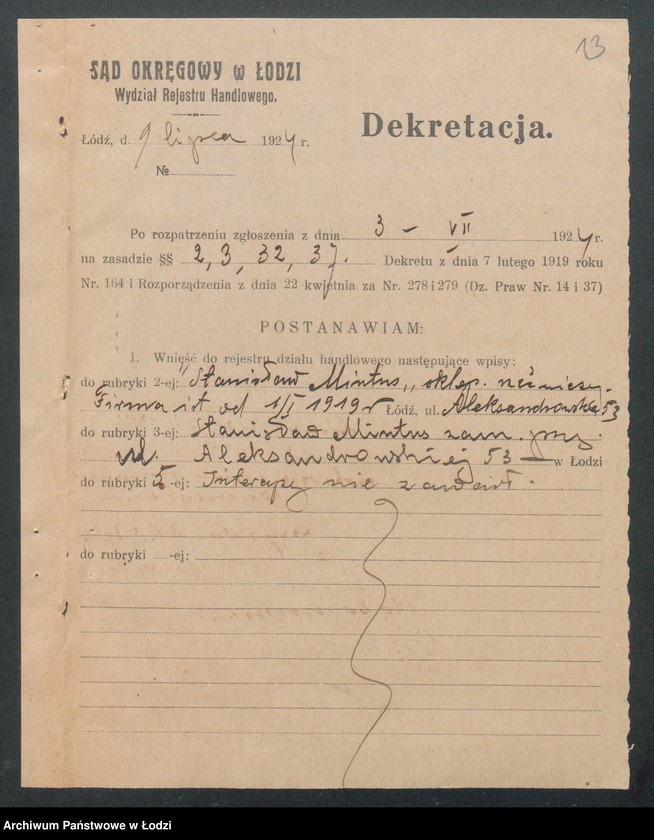 13
SĄD OKRĘGOWY w ŁODZI
Wydział Rejestru Handlowego.
Dekretacja.
Łódź, d. 9 lipca 1924 r.
№
Po rozpatrzeniu zgłoszenia z dnia 3 – VII 1924 r.
na zasadzie §§ 2, 3, 32, 37. Dekretu z dnia 7 lutego 1919 roku
Nr. 164 i Rozporządzenia z dnia 22 kwjetnia za Nr. 278 i 279 (Dz. Praw Nr. 14 i 37)
POSTANAWIAM:
1. Wnięść do rejestru działu handlowego następujące wpisy:
do rubryki 2-ej: "Stanisław Mintus„ sklep.
Firma ist od 1/I 1919 r Łódź, ul. Aleksandrowska 53
do rubryki 3-ej: Stanisław Mintus zam. przy
ul. Aleksandrowskiej 53 — w Łodzi
do rubryki 5-ej: Intercyzy nie zawarł.
do rubryki -ej:
Archiwum Państwowe w Łodzi